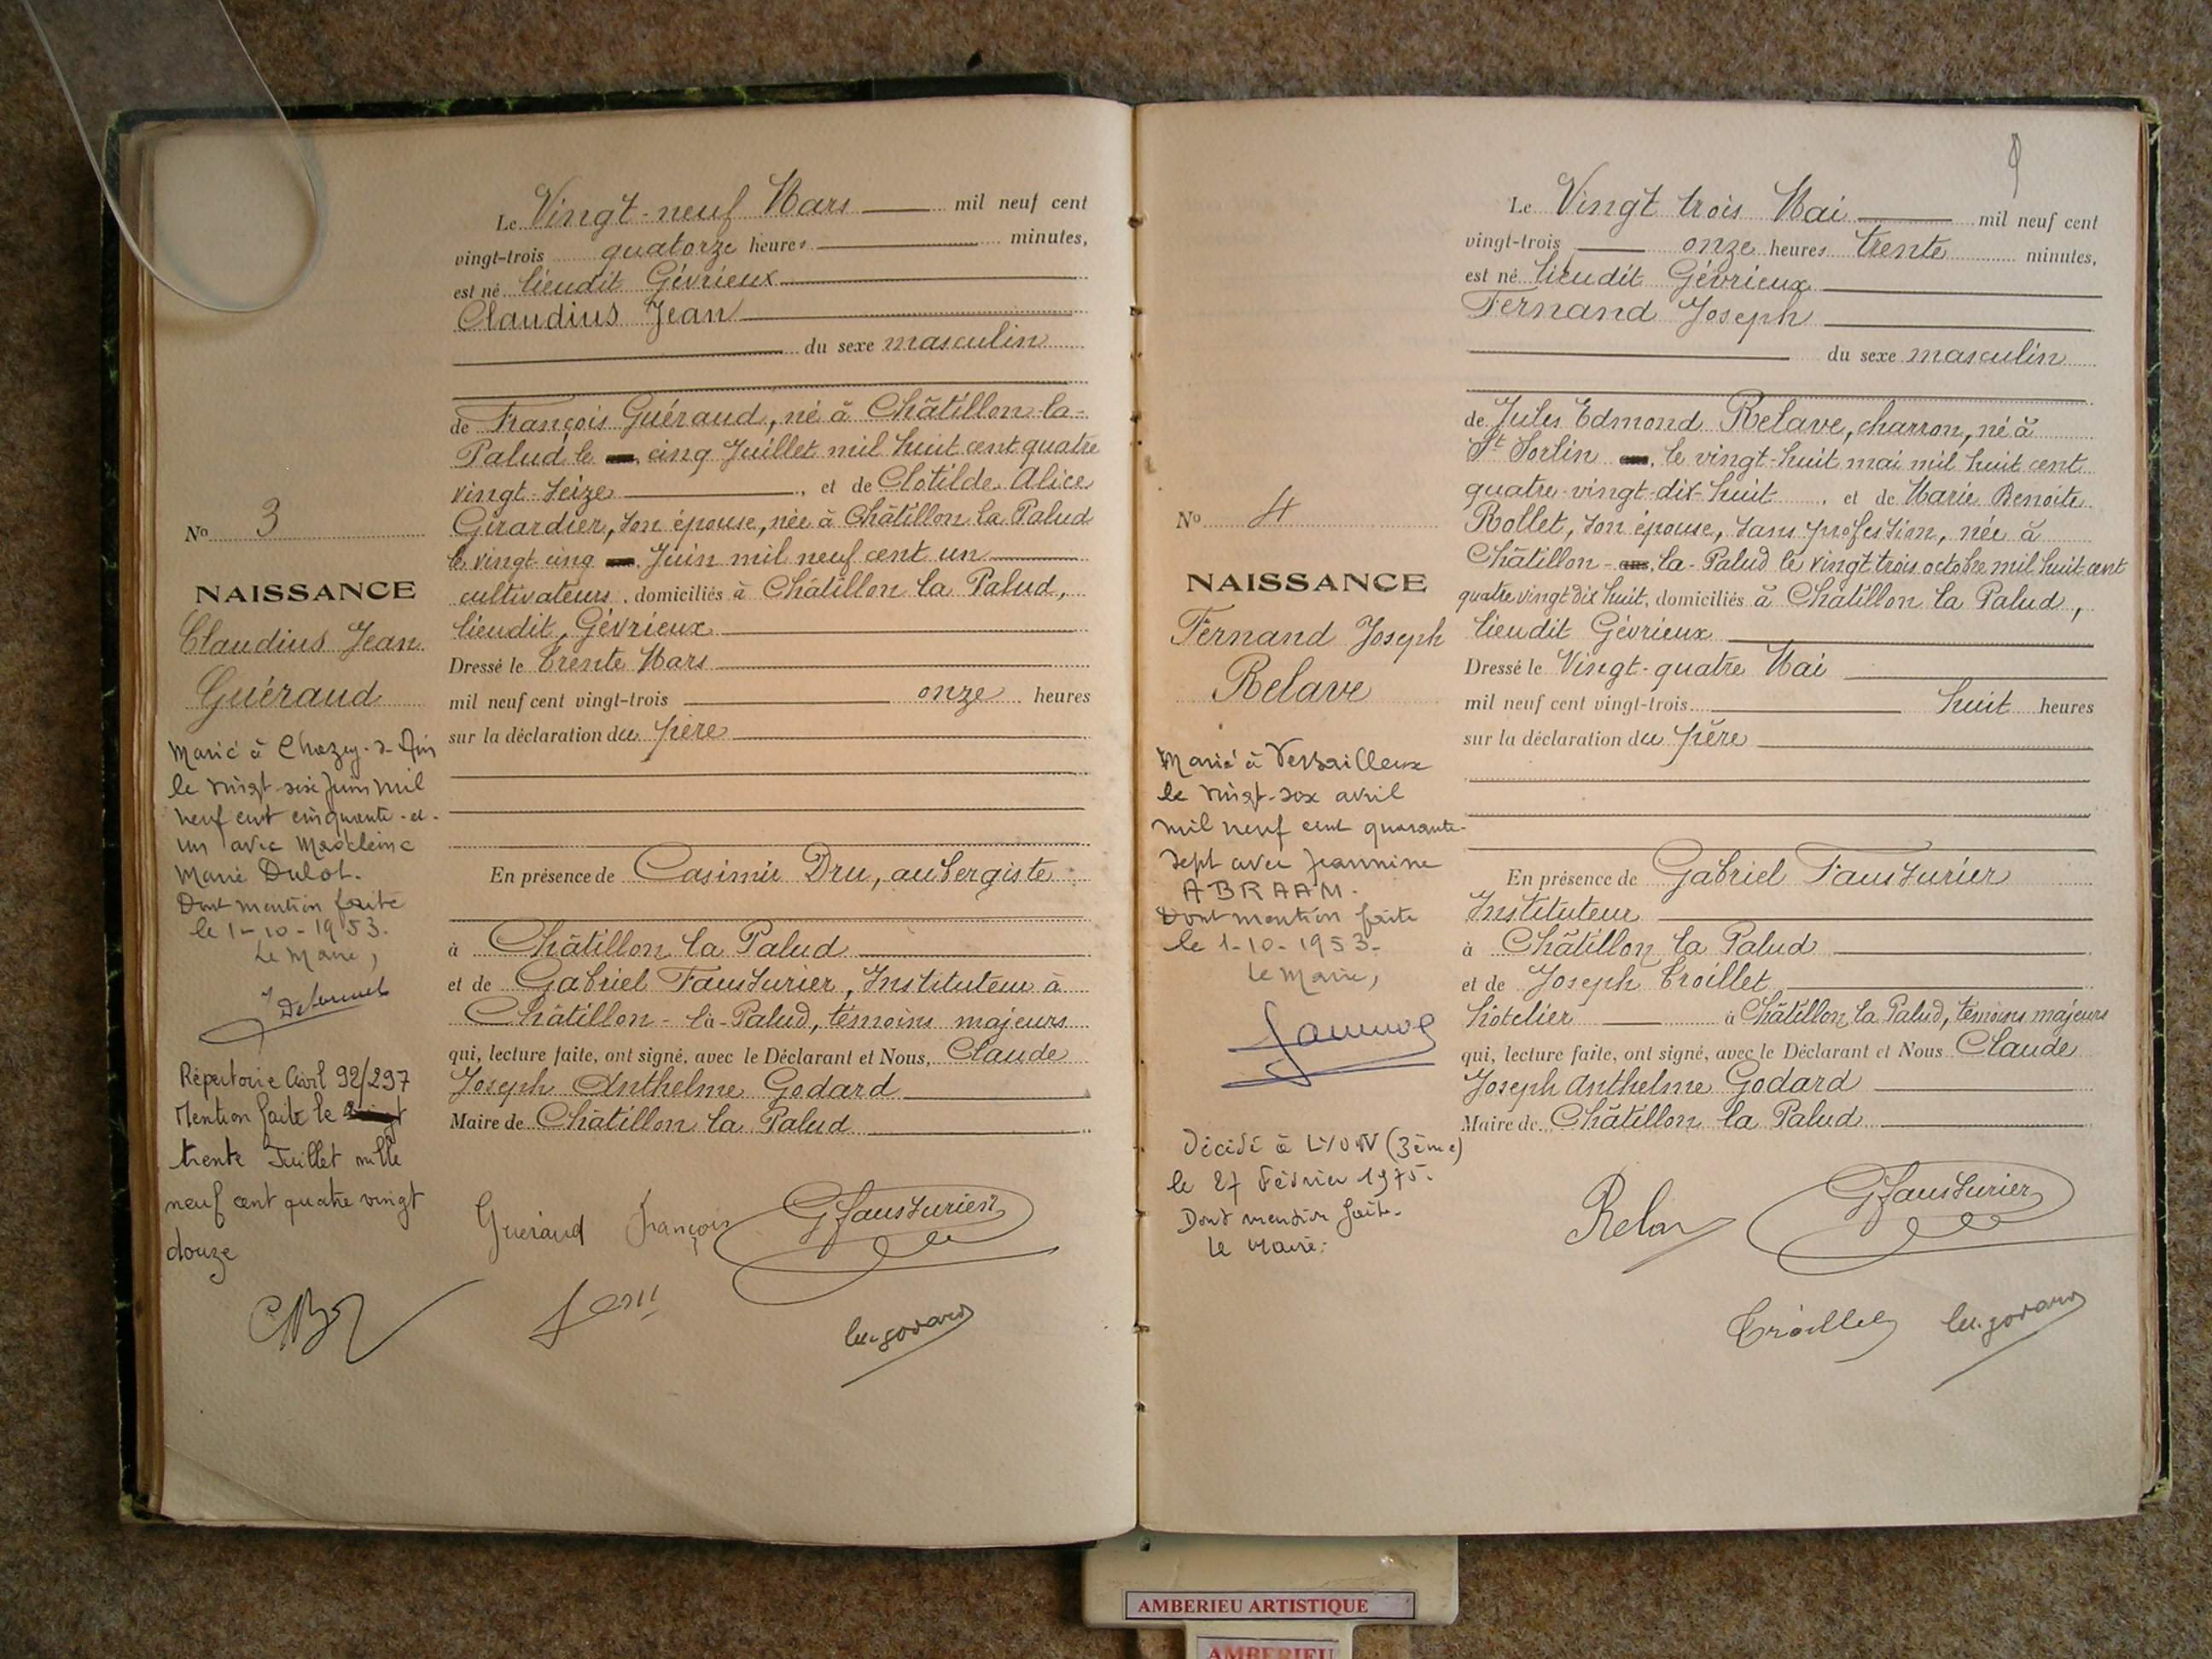 Le Vingt-neuf Mars mil neuf cent
vingt-trois quatorze heures minutes,
est né lieudit Gévrieux
Claudius Jean
du sexe masculin
de François Guéraud, né à Châtillon-la-
Palud le cinq Juillet mil huit cent quatre
vingt-seize, et de Clotilde Alice
Girardier, son épouse, née à Châtillon la Palud
le vingt-cinq Juin mil neuf cent un
cultivateurs, domiciliés à Châtillon la Palud,
lieudit, Gévrieux
Dressé le trente Mars
mil neuf cent vingt-trois onze heures
sur la déclaration du père
En présence de Casimir Dru, aubergiste
à Châtillon la Palud
et de Gabriel Fausturier, Instituteur à
Châtillon-la-Palud, témoins majeurs
qui, lecture faite, ont signé, avec le Déclarant et Nous, Claude
Joseph Anthelme Godard
Maire de Châtillon la Palud
Guéraud François GFausturier
No 3
NAISSANCE
Claudius Jean
Guéraud
Marié à Chazey-s-Ain
le vingt-six Juin mil
neuf cent cinquante-et-
un avec Madeleine
Marie Dulot.
Dont mention faite
le 1-10-1953.
Le Maire,
Répertoire Civil 92/297
Mention faite le
trente Juillet mille
neuf cent quatre vingt
douze
Le Vingt trois Mai mil neuf cent
vingt-trois onze heures trente minutes,
est né lieudit Gévrieux
Fernand Joseph
du sexe masculin
de Jules Edmond Relave, charron, né à
St Sorlin, le vingt-huit mai mil huit cent
quatre-vingt-dix-huit, et de Marie Benoite
Rollet, son épouse, sans profession, née à
Châtillon-la-Palud le vingt trois octobre mil huit cent
quatre vingt dix huit, domiciliés à Châtillon la Palud,
lieudit Gévrieux
Dressé le Vingt-quatre Mai
mil neuf cent vingt-trois huit heures
sur la déclaration du père
En présence de Gabriel Fausturier
Instituteur
à Châtillon la Palud
et de Joseph Troillet
hôtelier à Châtillon la Palud, témoins majeurs
qui, lecture faite, ont signé, avec le Déclarant et Nous Claude
Joseph Anthelme Godard
Maire de Châtillon la Palud
GFausturier
Troillet
No 4
NAISSANCE
Fernand Joseph
Relave
Marié à Versailleux
le vingt-six avril
mil neuf cent quarante-
sept avec Jeannine
ABRAAM.
Dont mention faite
le 1-10-1953.
Le Maire,
Décédé à LYON (3ème)
le 27 Février 1975.
Dont mention faite.
Le Maire:
AMBERIEU ARTISTIQUE
AMBERIEU